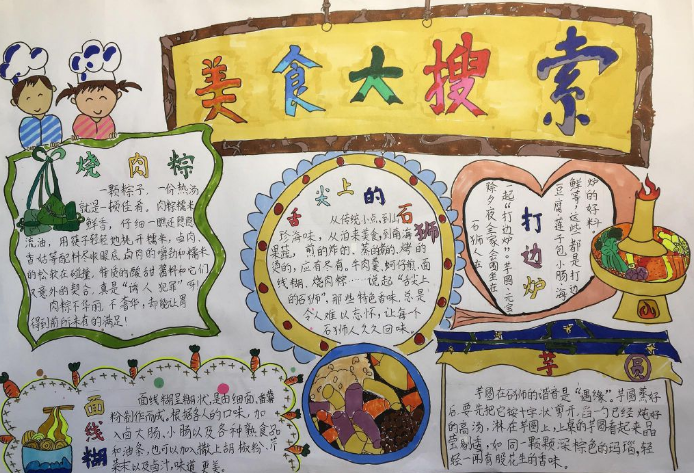 美食大搜索
烧肉粽
一颗粽子，一份热汤
就是一顿佳肴。肉粽糯米
鲜香，仔细一瞧还竟是
流油，用筷子轻轻地挑开糯米，卤肉、
香菇等配料尽收眼底，卤肉的劲和糯米
的松软在碰撞，特使的酸甜酱料和它们
又意外的契合。真是"诱人犯罪"啊！
肉粽不华丽，不奢华，却能让胃
得到前所未有的满足！
舌尖上的石狮
从传统小点，到山
珍海味，从泊来美食，到南海
果蔬，煎的炸的，蒸的煮的，烤的
烫的，应有尽有。牛肉羹、蚵仔煎、面
线糊、烧肉粽……说起"舌尖上
的石狮"，那些特色香味，总是
令人难以忘怀，让每个
石狮人久久回味。
打边炉
石狮人在
除夕夜，全家会围坐在
一起"打边炉"。芋圆、元宝
豆腐、莲子包、小肠、海
鲜等，这些都是打边
炉的好料
面线糊
面线糊呈糊状，是由细面、番薯
粉制作而成。根据各人的口味，加
入卤大肠、小肠以及各种熟食品
和油条，也可以加撒上胡椒粉、芹
菜末以及高汁，味道更美。
芋圆
芋圆在石狮的谐音是"遇缘"。芋圆蒸好
后，要先把它按十字状剪开，当一勺已经炖好
的高汤，淋在芋圆上，上桌的芋圆看起来晶
莹剔透，如同一颗颗深棕色的玛瑙，轻
轻一闻有股花生的香味。